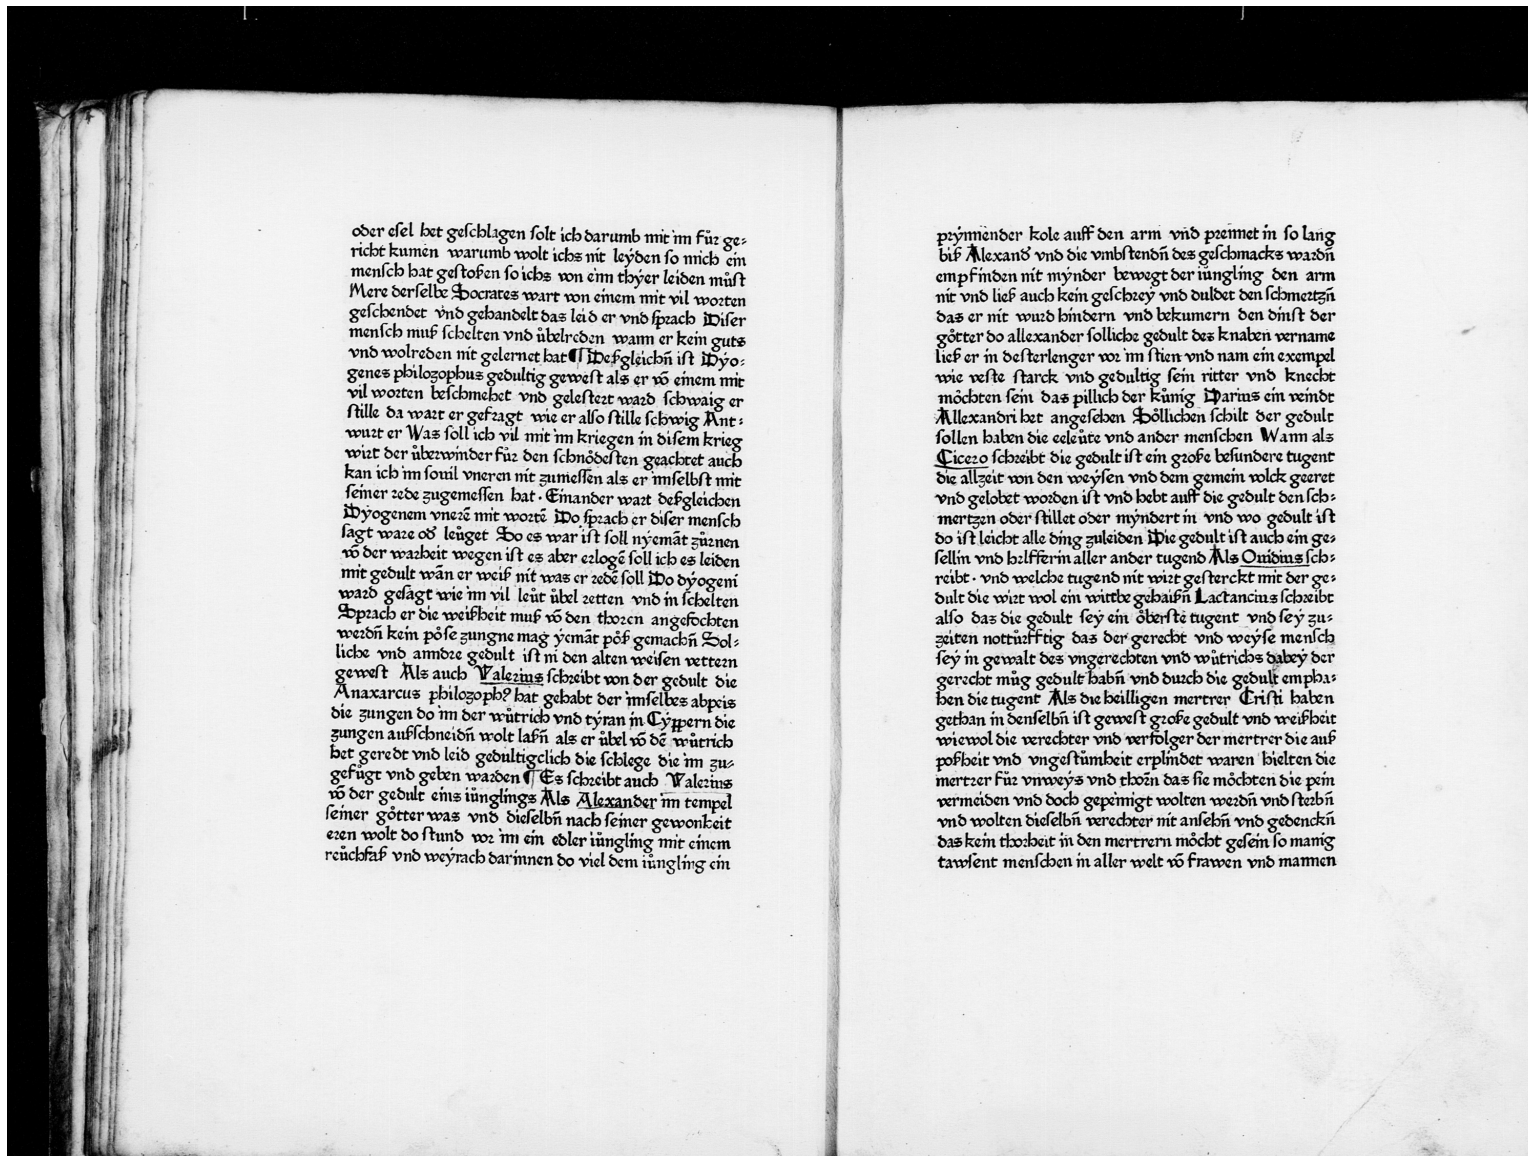 oder esel het geschlagen solt ich darumb mit im für ge⸗
richt kumen warumb wolt ichs nit leyden so mich ein
mensch hat gestoßen so ichs von eim thyer leiden můst
Mere derselbe Socrates wart von einem mit vil worten
geschendet vnd gehandelt das leid er vnd sprach Diser
mensch muß schelten vnd übelreden wann er kein guts
vnd wolreden nit gelernet hat ¶ Deßgleichñ ist Dyo⸗
genes philozophus gedultig gewest als er võ einem mit
vil worten beschmehet vnd gelestert ward schwaig er
stille da wart er gefragt wie er also stille schwig Ant⸗
wurt er Was soll ich vil mit im kriegen in disem krieg
wirt der überwinder für den schnödesten geachtet auch
kan ich im souil vneren nit zumessen als er imselbst mit
seiner rede zugemessen hat · Einander wart deßgleichen
Dyogenem vnerẽ mit wortẽ Do sprach er diser mensch
sagt ware od̕ leüget So es war ist soll nyemãt zürnen
võ der warheit wegen ist es aber erlogẽ soll ich es leiden
mit gedult wãn er weiß nit was er redẽ soll Do dyogeni
ward gesagt wie im vil leüt übel retten vnd in schelten
Sprach er die weißheit muß võ den thoren angefochten
werdñ kein pöse zungne mag yemãt pöß gemachñ Sol⸗
liche vnd anndre gedult ist in den alten weisen vettern
gewest Als auch Valerius schreibt von der gedult die
Anaxarcus philozophꝰ hat gehabt der imselbes abpeis
die zungen do im der wütrich vnd tyran in Cyppern die
zungen außschneidñ wolt laßñ als er übel võ dẽ wütrich
het geredt vnd leid gedultigclich die schlege die im zu⸗
gefügt vnd geben warden ¶ Es schreibt auch Valerius
võ der gedult eins iünglings Als Alexander im tempel
seiner götter was vnd dieselbñ nach seiner gewonheit
eren wolt do stund vor im ein edler iüngling mit einem
reüchfaß vnd weyrach darinnen do viel dem iüngling ein
prynnender kole auff den arm vnd prennet in so lang
biß Alexand̕ vnd die vmbstendñ des geschmacks wardñ
empfinden nit mynder bewegt der iüngling den arm
nit vnd ließ auch kein geschrey vnd duldet den schmertzñ
das er nit wurd hindern vnd bekumern den dinst der
götter do allexander solliche gedult des knaben vername
ließ er in desterlenger vor im stien vnd nam ein exempel
wie veste starck vnd gedultig sein ritter vnd knecht
möchten sein das pillich der künig Darius ein veindt
Allexandri het angesehen Söllichen schilt der gedult
sollen haben die eeleüte vnd ander menschen Wann als
Cicero schreibt die gedult ist ein große besundere tugent
die allzeit von den weysen vnd dem gemein volck geeret
vnd gelobet worden ist vnd hebt auff die gedult den sch⸗
mertzen oder stillet oder myndert in vnd wo gedult ist
do ist leicht alle ding zuleiden Die gedult ist auch ein ge⸗
sellin vnd hrlfferin aller ander tugend Als Ouidius sch⸗
reibt · vnd welche tugend nit wirt gesterckt mit der ge⸗
dult die wirt wol ein wittbe gehaißñ Lactancius schreibt
also das die gedult sey ein öberste tugent vnd sey zu⸗
zeiten nottürfftig das der gerecht vnd weyse mensch
sey in gewalt des vngerechten vnd wütrichs dabey der
gerecht müg gedult habñ vnd durch die gedult empha⸗
hen die tugent Als die heilligen mertrer Cristi haben
gethan in denselbñ ist gewest große gedult vnd weißheit
wiewol die verechter vnd verfolger der mertrer die auß
poßheit vnd vngestümheit erplindet waren hielten die
mertrer für vnweys vnd thorñ das sie möchten die pein
vermeiden vnd doch gepeinigt wolten werdñ vnd sterbñ
vnd wolten dieselbñ verechter nit ansehñ vnd gedenckñ
das kein thorheit in den mertrern möcht gesein so manig
tawsent menschen in aller welt võ frawen vnd mannen